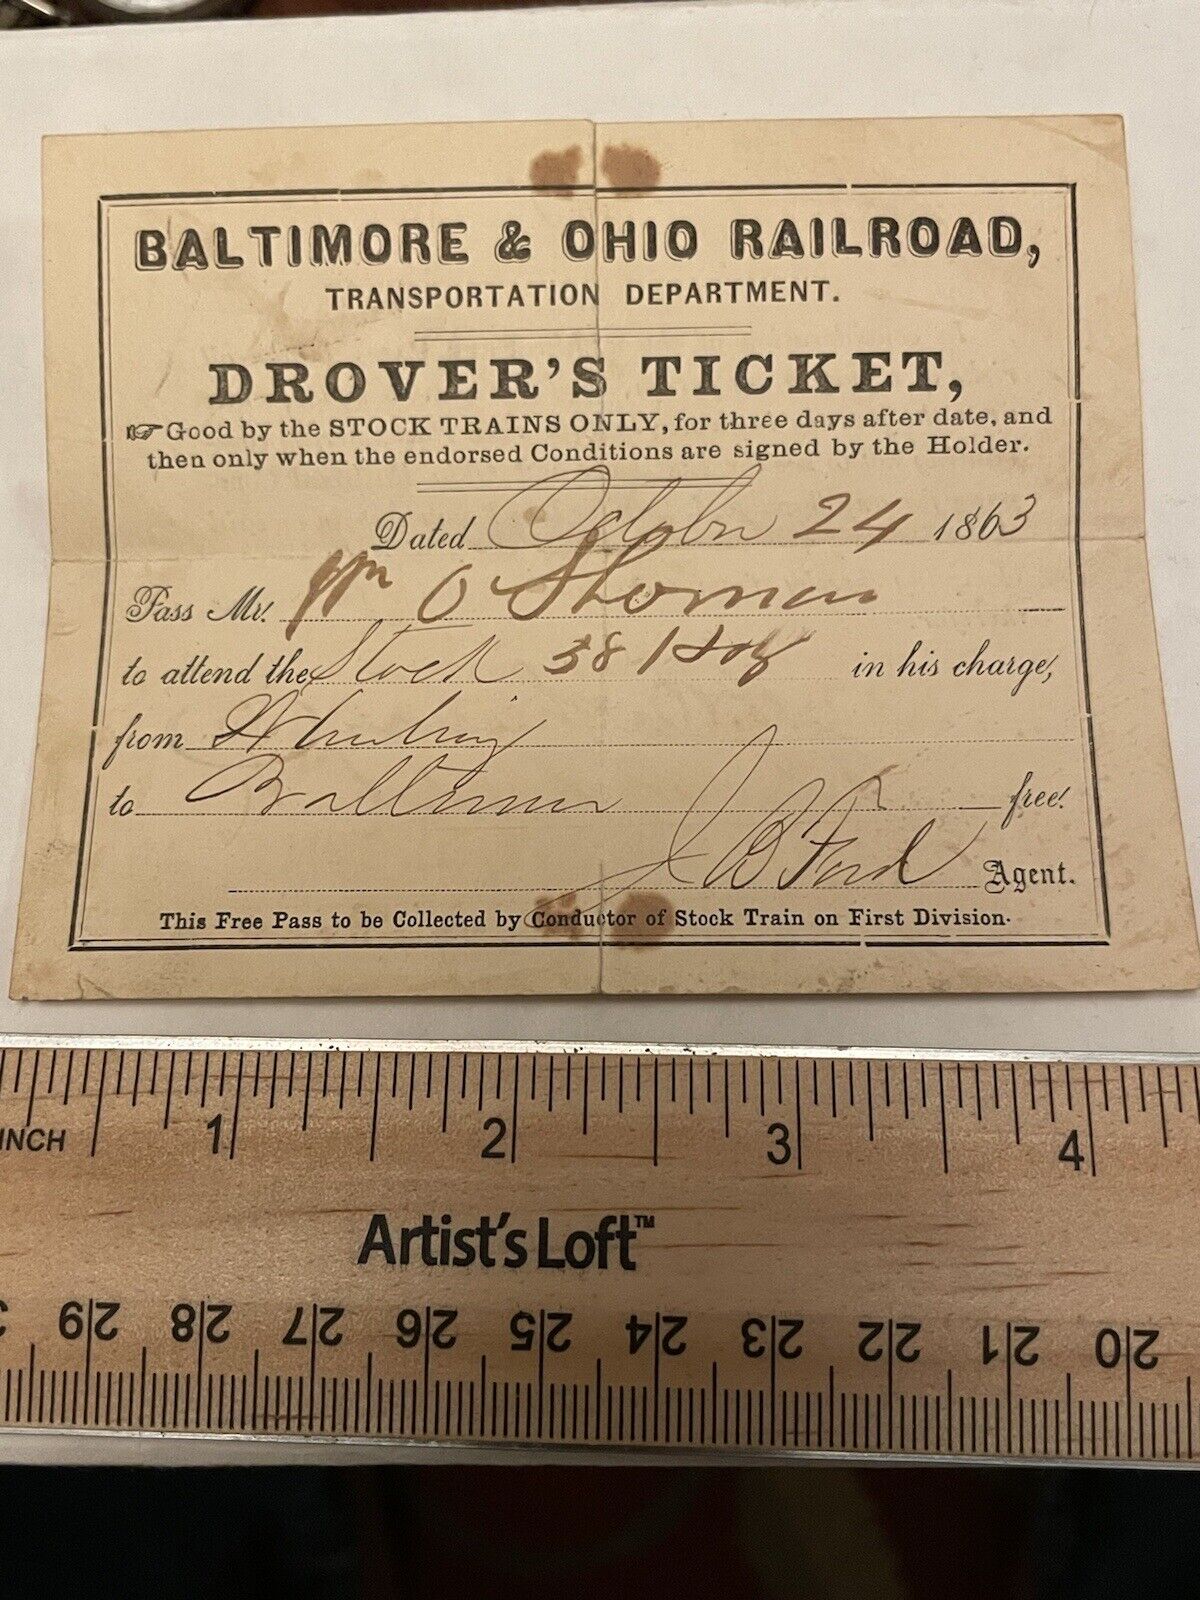 BALTIMORE & OHIO RAILROAD,
TRANSPORTATION DEPARTMENT.
DROVER'S TICKET,
☞ Good by the STOCK TRAINS ONLY, for three days after date, and
then only when the endorsed Conditions are signed by the Holder.
Dated October 24 1863
Pass Mr. Wm O
to attend the Stock 58 Hogs in his charge,
from Wheeling
to Baltimore free.
J B Ford Agent.
This Free Pass to be Collected by Conductor of Stock Train on First Division.
INCH 1 2 3 4
Artist's Loft™
29 28 27 26 25 24 23 22 21 20